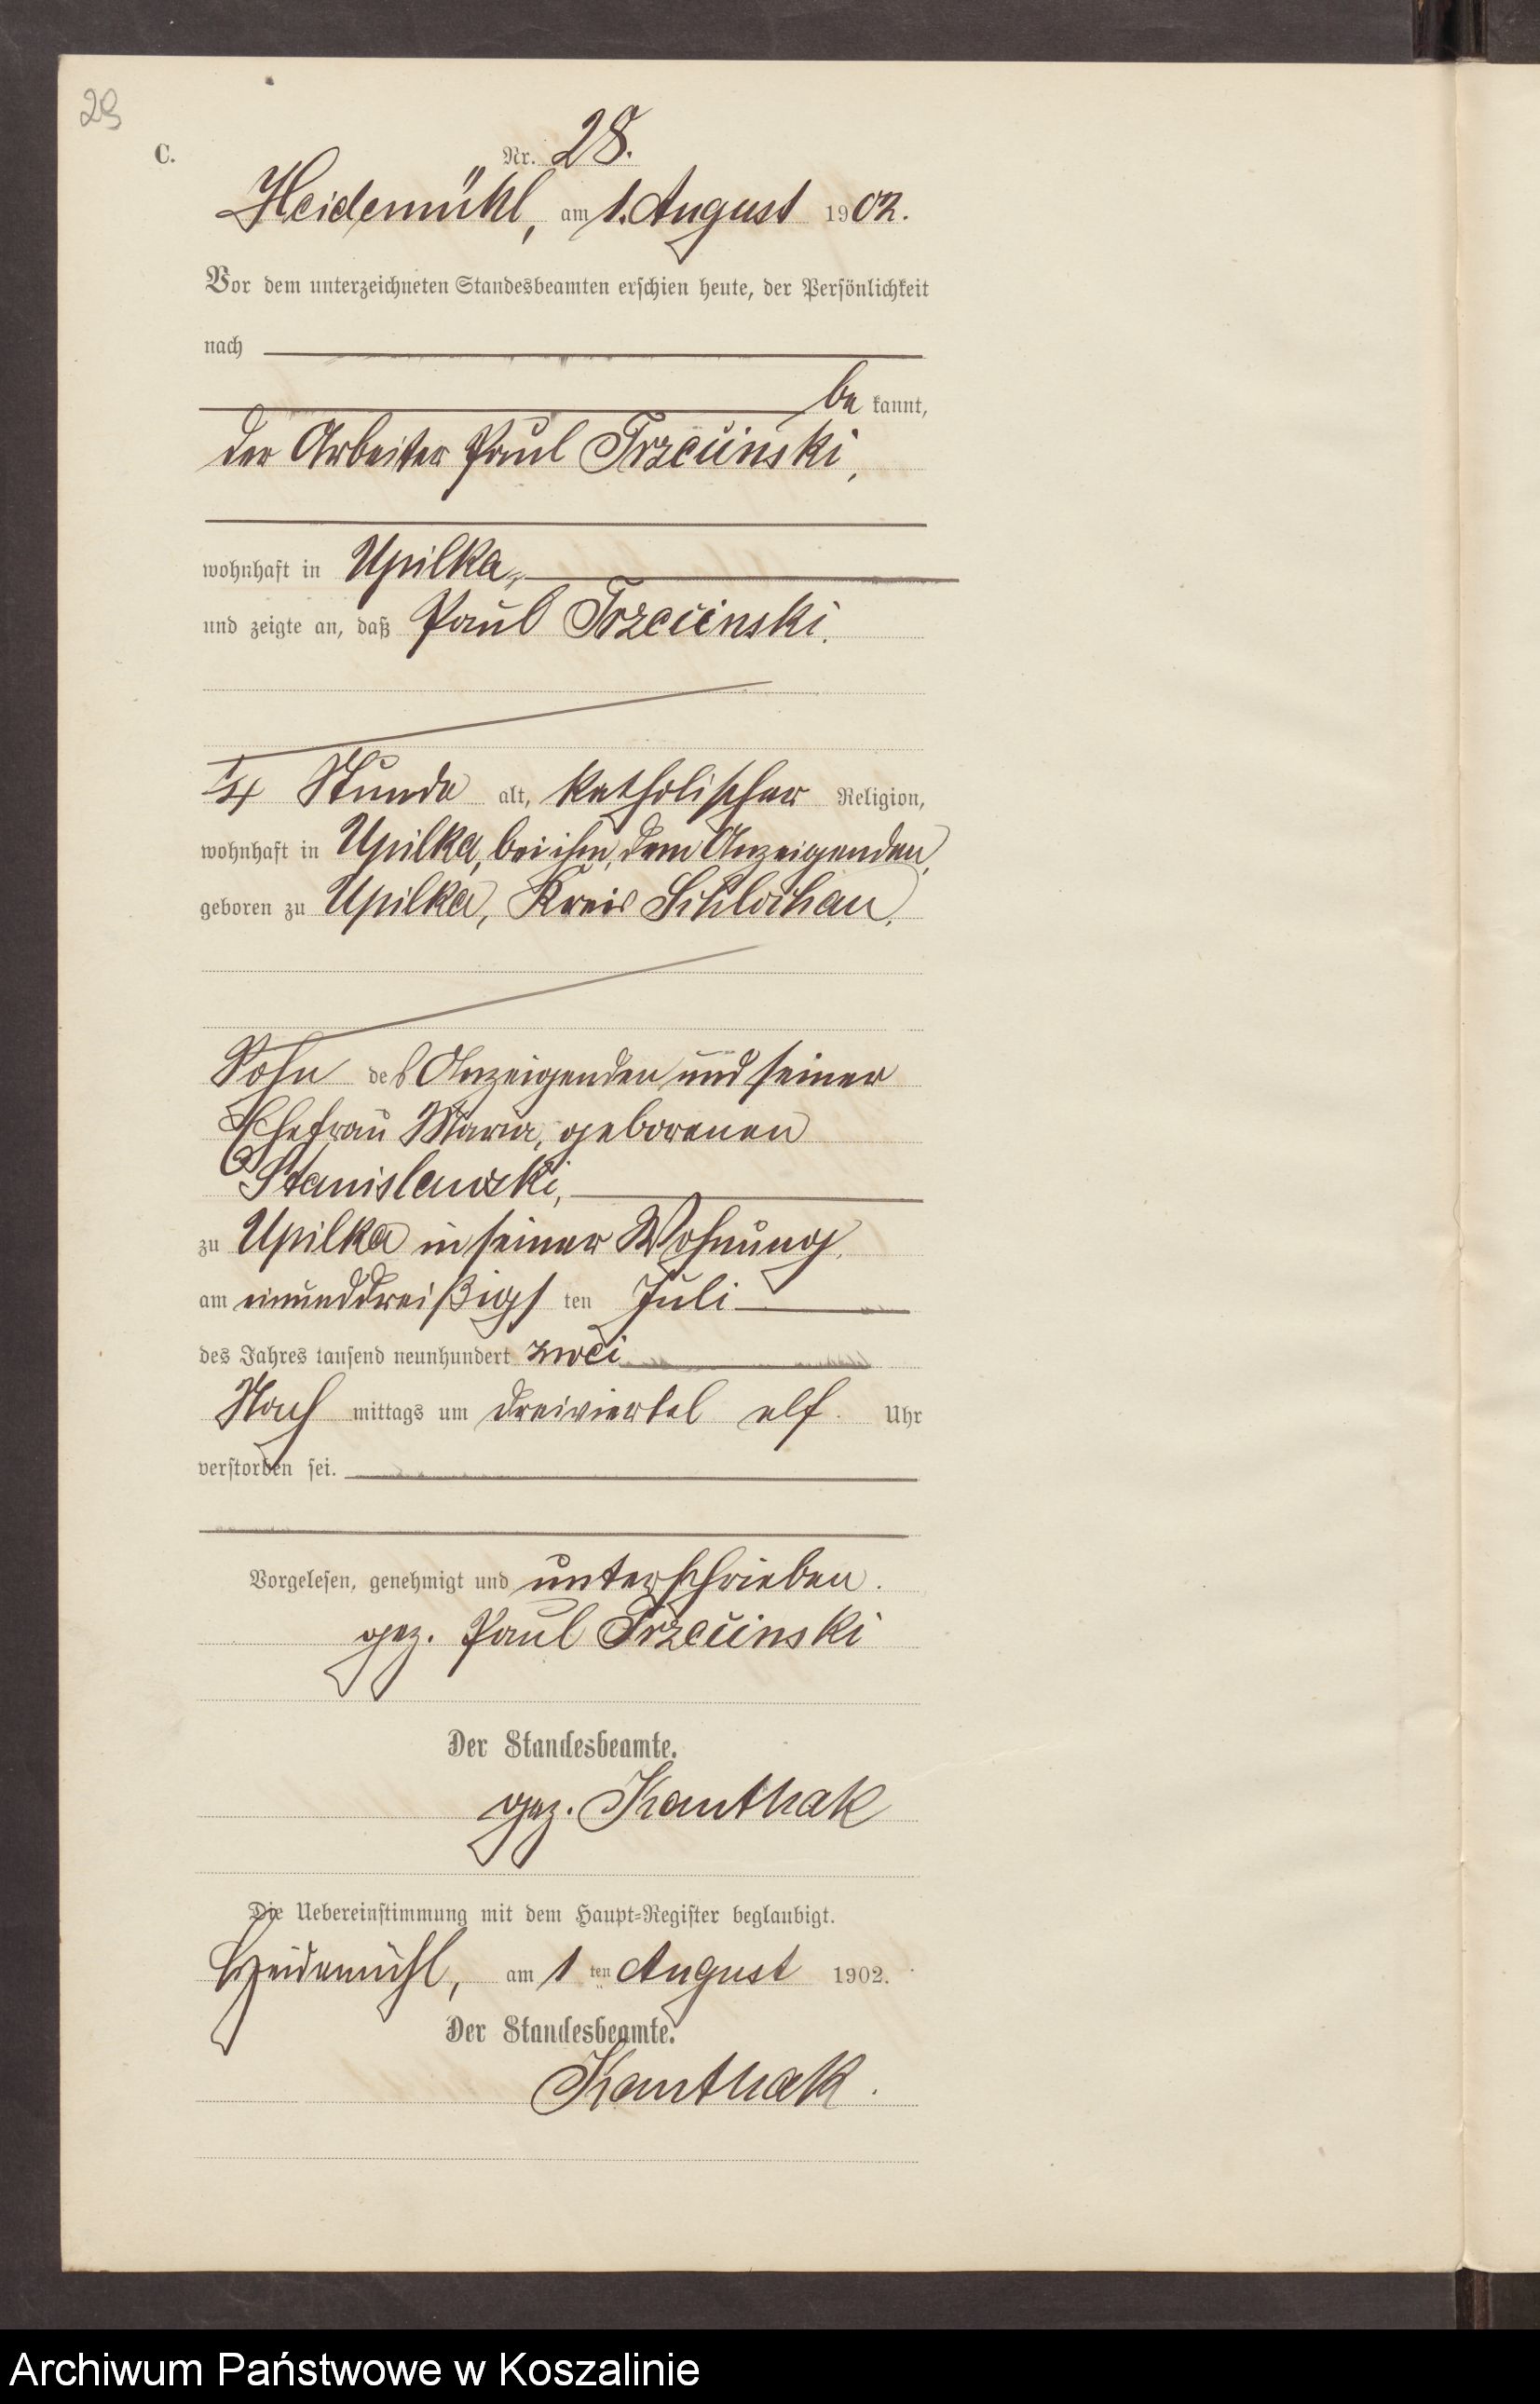 29
C.
Nr. 28.
Heidemühl, am 1. August 1902.
Vor dem unterzeichneten Standesbeamten erschien heute, der Persönlichkeit
nach
be kannt,
der Arbeiter Paul Trzcinski,
wohnhaft in Upilka,
und zeigte an, daß Paul Trzcinski,
1/4 Stunde alt, katholischer Religion,
wohnhaft in Upilka, bei ihm, dem Anzeigenden,
geboren zu Upilka, Kreis Schlochau,
Sohn des Anzeigenden und seiner
Ehefrau Maria, geborenen
Stanislawski,
zu Upilka in seiner Wohnung,
am einunddreißigs ten Juli
des Jahres tausend neunhundert zwei
Nach mittags um dreiviertel elf Uhr
verstorben sei.
Vorgelesen, genehmigt und unterschrieben.
gez. Paul Trzcinski
Der Standesbeamte.
gez. Kanthak
Die Uebereinstimmung mit dem Haupt-Register beglaubigt.
Heidemühl, am 1 ten August 1902.
Der Standesbeamte.
Kanthak.
Archiwum Państwowe w Koszalinie